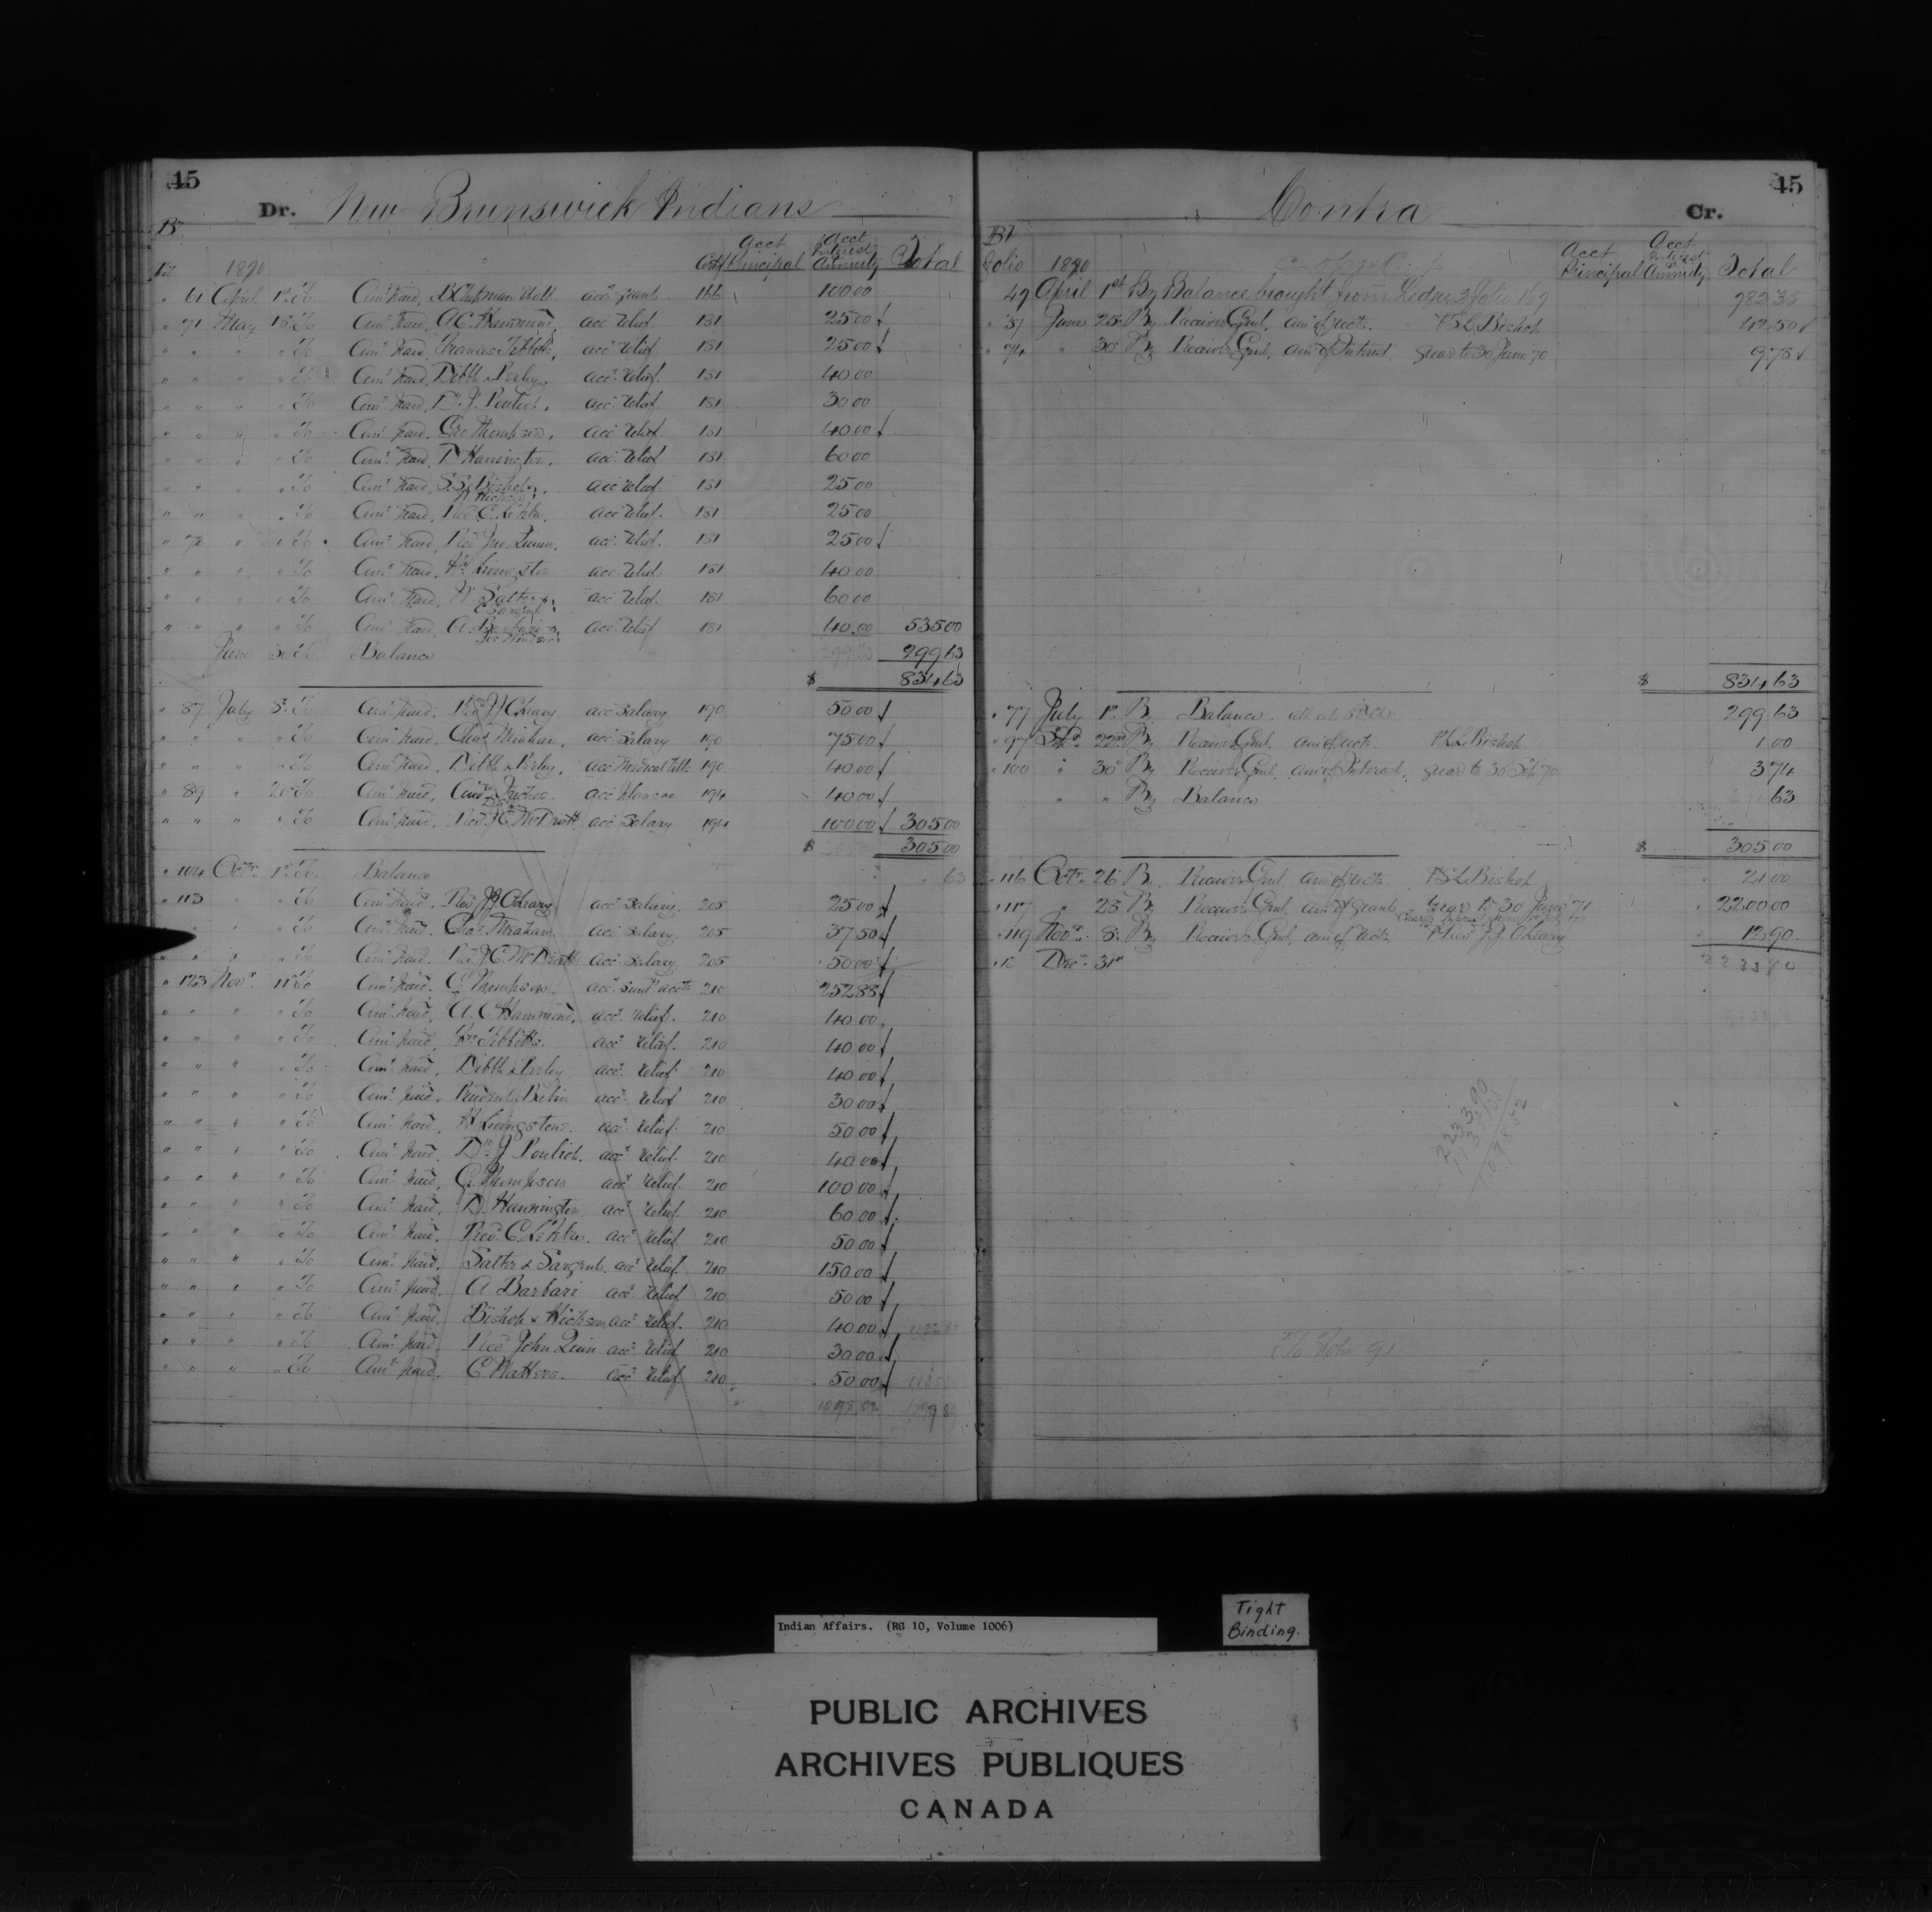 45
Dr. New Brunswick Indians
1870
Certf
Acct Principal
Acct Interest Annuity
Total
" 61 April 1st To Amt paid, acct grant 166 100.00
" 71 May 18 To Amt paid, A C Hammond, acct relief 181 25.00
" " " " To Amt paid, Francis Tibbitts, acct relief 181 25.00
" " " " To Amt paid, Dibble & Perley, acct relief 181 40.00
" " " " To Amt paid, Dr J. Pouliot, acct relief 181 30.00
" " " " To Amt paid, Geo Thompson, acct relief 181 40.00
" " " " To Amt paid, D Hanington, acct relief 181 60.00
" " " " To Amt paid, Bishop, acct relief 181 25.00
" " " " To Amt paid, Rev C. acct relief 181 25.00
" 72 " " To Amt paid, Rev Jno Quinn, acct relief 181 25.00
" " " " To Amt paid, Livingston acct relief 181 40.00
" " " " To Amt paid, Salter & Sargent acct relief 181 60.00
" " " " To Amt paid, A. Barbari acct relief 181 40.00 535.00
June 30 To Balance 299.63
$ 834.63
" 87 July 8 To Amt paid, Rev J J OLeary acct salary 190 50.00
" " " " To Amt paid, Chas acct salary 190 75.00
" " " " To Amt paid, Dibble & Perley, acct Medical 190 40.00
" 89 " 20 To Amt paid, acct 194 40.00
" " " " To Amt paid, Rev J C McDevitt acct salary 194 100.00 305.00
$ 305.00
" 104 Octr 1st To Balance .63
" 113 " " To Amt paid, Rev J J OLeary acct salary 205 25.00
" " " To Amt paid, Chas acct salary 205 37.50
" " " " To Amt paid, Rev J C McDevitt acct salary 205 50.00
" 123 Novr 11 To Amt paid, G Thompson acct accts 210 252.88
" " " " To Amt paid, A. C Hammond, acct relief 210 40.00
" " " " To Amt paid, Tibbitts. acct relief 210 40.00
" " " " To Amt paid, Dibble & Perley acct relief 210 40.00
" " " " To Amt paid, acct relief 210 30.00
" " " " To Amt paid, Livingston. acct relief 210 50.00
" " " " To Amt paid, Dr J Pouliot. acct relief 210 40.00
" " " " To Amt paid, G. Thompson acct relief 210 100.00
" " " " To Amt paid, D. Hannington acct relief 210 60.00
" " " " To Amt paid, Rev. C. acct relief 210 50.00
" " " " To Amt paid, Salter & Sargent, acct relief 210 150.00
" " " " To Amt paid, A Barbari acct relief 210 50.00
" " " " To Amt paid, Bishop & Hickson acct relief 210 40.00
" " " " To Amt paid, Rev John Quinn acct relief 210 30.00
" " " " To Amt paid, C Watters. acct relief 210 50.00
45
Contra Cr.
Folio 1870
Acct Principal
Acct Interest Annuity
Total
49 April 1st By Balance brought from Ledger 3 Folio 169 782.35
" 57 June 25 By Receiver Genl, amt of rects. Bishop 42.50
" 74 " 30 By Receiver Genl, amt of Interest, to 30 June 70 9.78
$ 834.63
" 77 July 1st By Balance 299.63
" 97 Sept 22nd By Receiver Genl, amt of rects. Bishop 1.00
" 100 " 30 By Receiver Genl, amt of Interest, to 30 Sept 70 3.74
" " By Balance .63
$ 305.00
" 116 Octr 26 By Receiver Genl amt of rects Bishop 21.00
" 117 " 28 By Receiver Genl, amt of grant to 30 June 71 2200.00
" 119 Novr 8 By Receiver Genl, amt of rects Rev J J OLeary 12.90
Decr 31st 2233.90
2233.90
To Folio 91
Indian Affairs. (RG 10, Volume 1006)
Tight
Binding.
PUBLIC ARCHIVES
ARCHIVES PUBLIQUES
CANADA